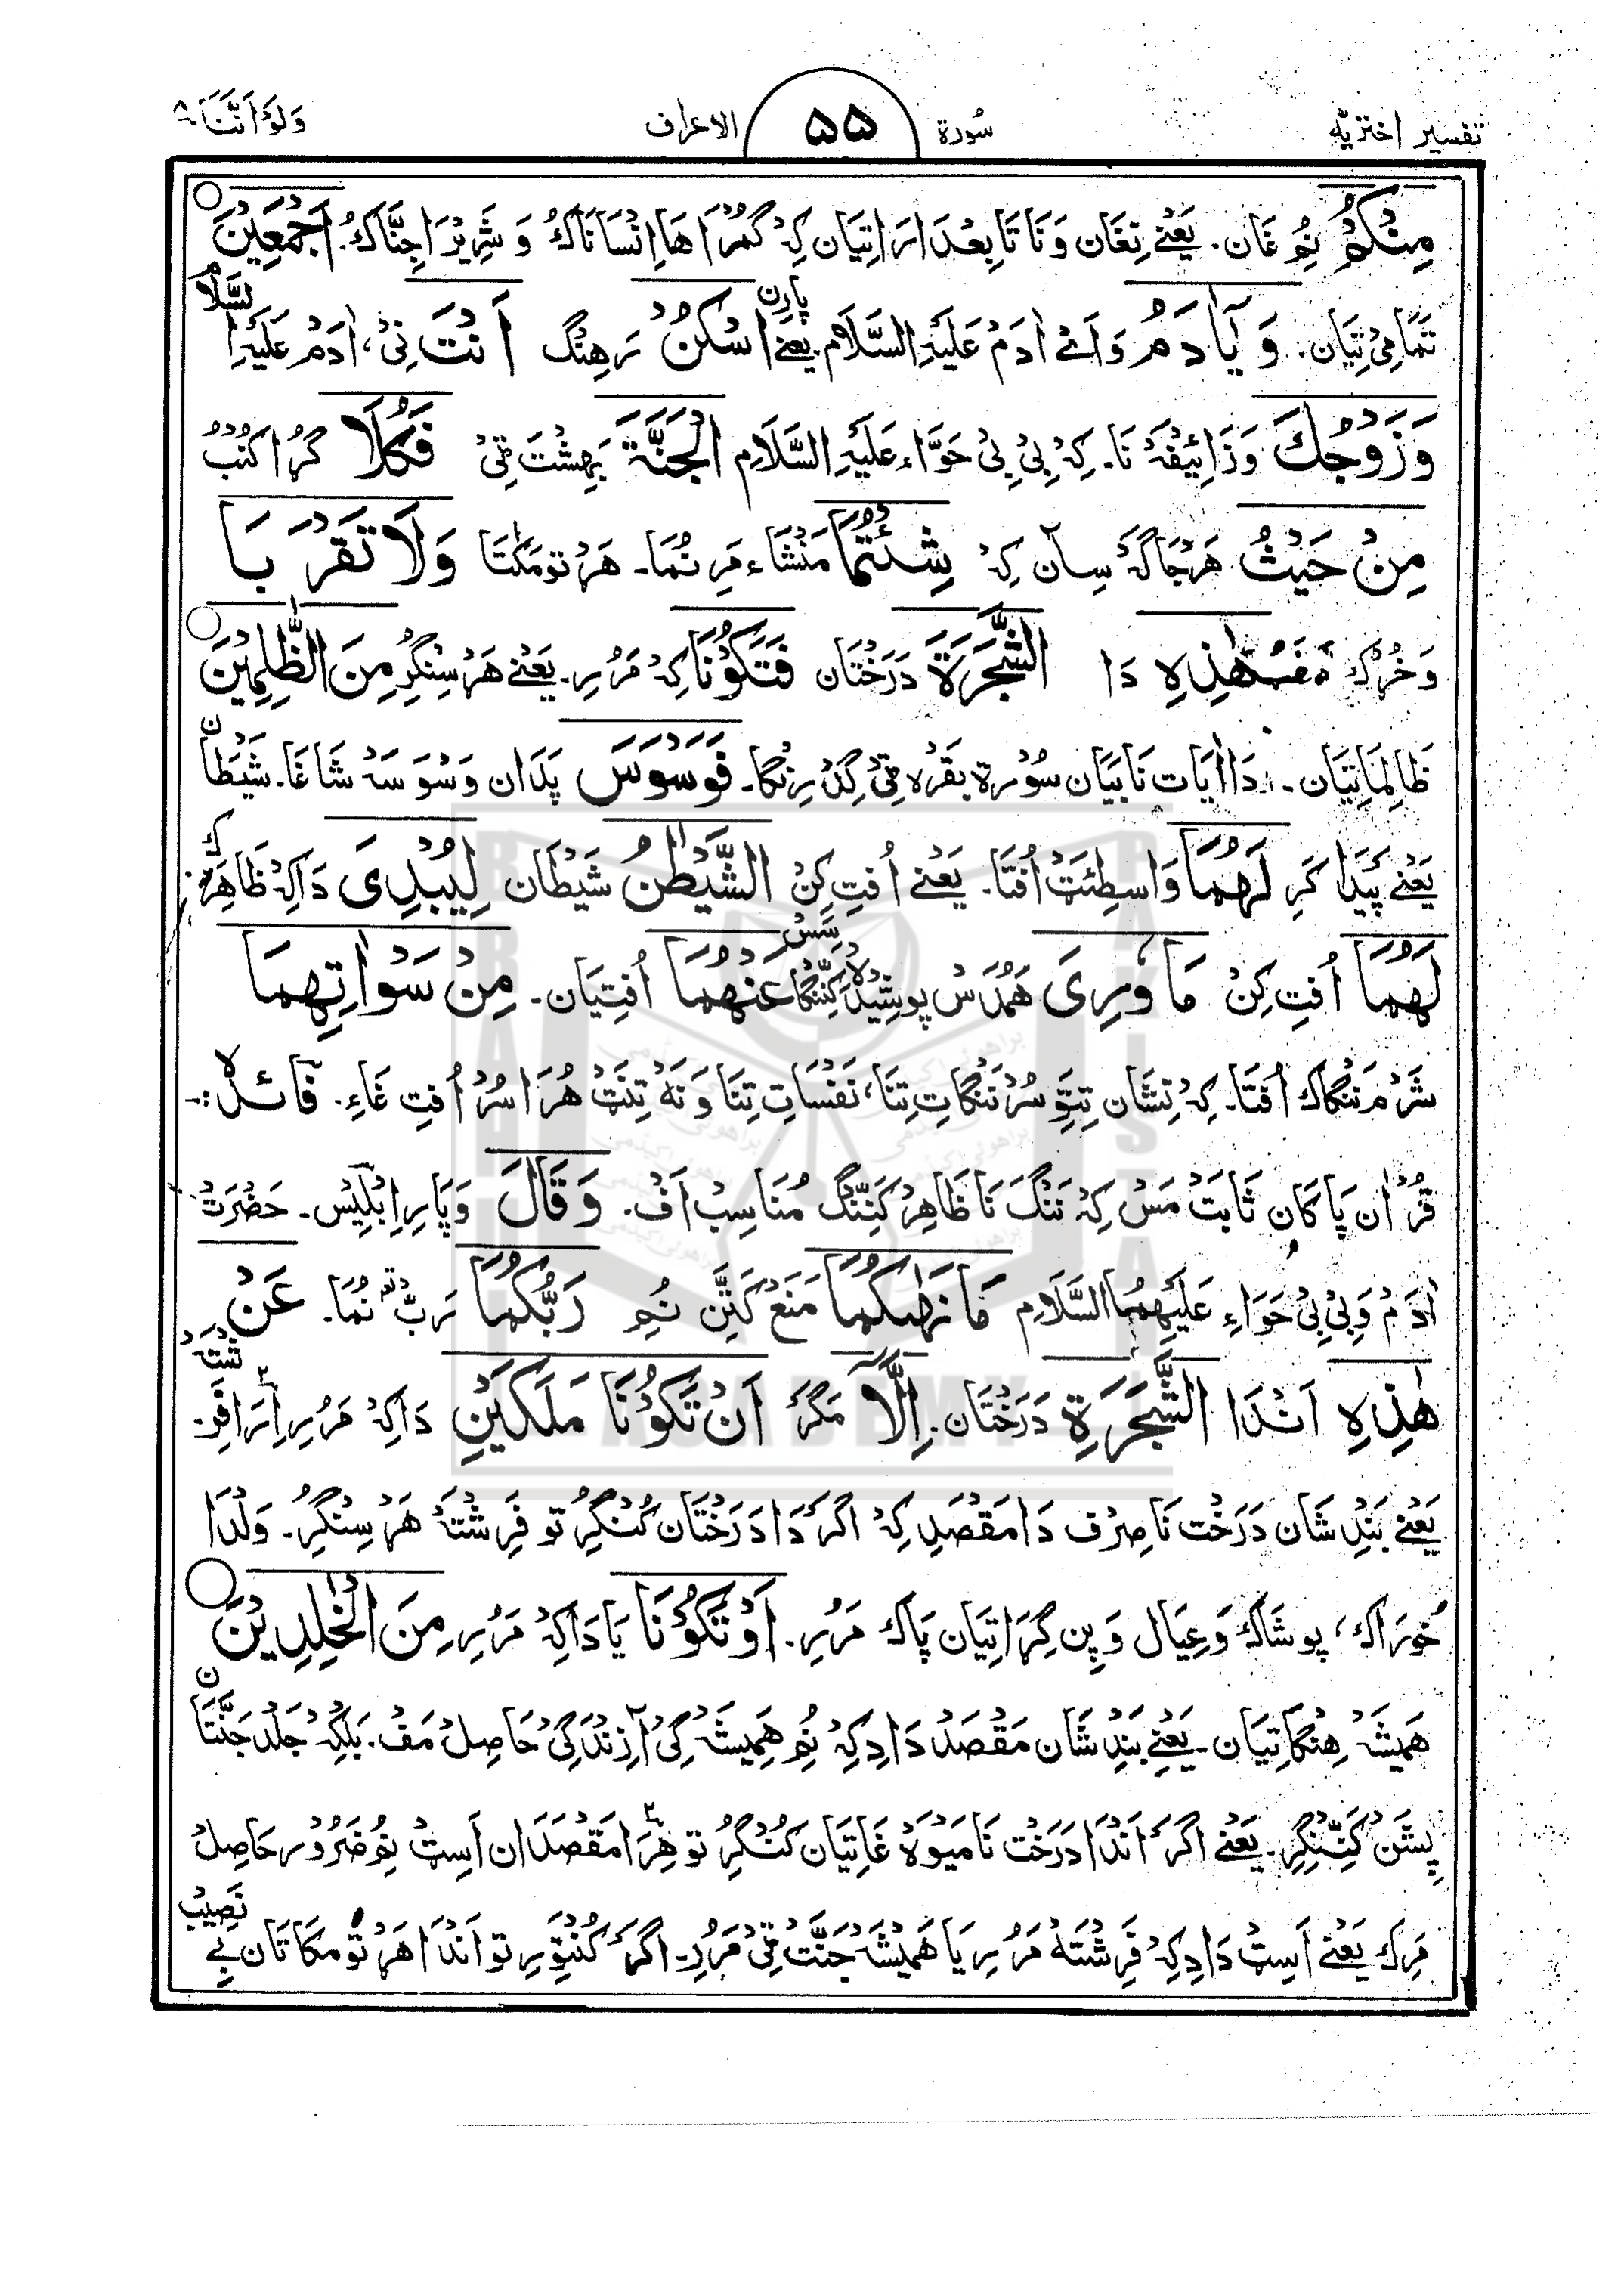 تفسیر اختریّه سُورة ۵۵ الاعراف وَلَوْ اَنَّنَا ۸
مِنْکُمْ نُم غَان۔ یَعْنِے نِغَان وَنَا تَابِعْدَارَاتِیَان کِہْ گُمْرَاھَا اِنْسَانَاکْ وَ شَرِیْرَا جِنَّاکْ۔ اَجْمَعِیْنَ
تَمَامِیْ تِیَان۔ وَ یَآادَمُ وَاَئے اٰدَمْ عَلَیْہِ السَّلَام یَعْنِے پَارِن اسْکُنْ رَھِنْگ اَنْتَ نِیْ، اٰدَمْ عَلَیْہِ السَّلَام
وَزَوْجُكَ وَزَائِیْفَہْ نَا۔ کِہْ بِیْ بِیْ حَوَّاء عَلَیْہِ السَّلَامِ الْجَنَّةَ بَہِشْتَ ٹِیْ فَکُلَا گُرُا کُنْبُ
مِنْ حَیْثُ ھَرْجَاگَہْ سِان کِہْ شِئْتُمَا مَنْشَاء مَرِ نُمَا۔ ھَرْ تومَکْتَا وَلَا تَقْرَبَا
وَخُرْکْ مَفَبْ ھٰذِہِ دَا الشَّجَرَةَ دَرَخْتَان فَتَکُوْنَا کِہْ مَرُرِ۔ یَعْنِے ھَرْسِنْگِرْ مِنَ الظّٰلِمِیْنَ
ظَالِمَاتِیَان۔ دَا اٰیَات نَا بَیَان سُوْرة بَقْرَہ ٹِیْ گِدْرِنْگَا۔ فَوَسْوَسَ پَدَان وَسْوَسَہْ شَاغَا۔ شَیْطَان
یَعْنِے پَیْدَا کَرِ لَھُمَا وَاسِطِئَتْ اُفْتَا۔ یَعْنِے اُفتِ کِنْ الشَّیْطٰنُ شَیْطَان لِیُبْدِیَ دَاکِہْ ظَاھِرْ کِ
لَھُمَا اُفتِ کِنْ مَا وٗرِیَ ھَمُدْسْ پوشِیْدَہ کَنِنْگَاسَسْ عَنْھُمَا اُفتِیَان۔ مِنْ سَوْاٰتِھِمَا
شَرْمَنْگَاکْ اُفْتَا۔ کِہْ نِشَان تِتَوِ سُرْنَنْگَاتِ تِنَا، نَفْسَاتِ تِنَا وَنَہْ تِنَتْ ھُرَاسُرْ اُفتِ غَاءِ۔ فَائِدَہ :۔
قُرْاٰن پَاکَان ثَابَتْ مَسْ کِہْ نَنْگَ نَا ظَاھِرْ کَنِنْگ مُنَاسِبْ اَفْ۔ وَقَالَ وَپَارِ اِبْلِیْس۔ حَضْرَتْ
اٰدَمْ وَبِیْ بِیْ حَوَاءِ عَلَیْھِمَا السَّلَامِ مَا نَھٰکُمَا مَنَعْ کَتَّن نُمِ رَبُّکُمَا رَبّ نُمَا۔ عَنْ
ھٰذِہِ اَنْدَا الشَّجَرَةِ دَرَخْتَان۔ اِلَّآ مَگَرْ اَنْ تَکُوْنَا مَلَکَیْنِ دَاکِہْ مَرُرِ اِرَافَرِشْتَہ
یَعْنِے بَنْدِ شَان دَرَخْت نَا صِرْف دَا مَقْصَدِ کِہْ اگَرْ دَا دَرَخْتَان کُنْگِرْ تو فَرِشْتَہْ ھَرْ سِنْگِرُ۔ وَلْدَا
خورَاک، پوشَاکْ وَعِیَال وَ پِن گِرَاتِیَان پَاکْ مَرُرِ۔ اَوْ تَکُوْنَا یَا دَاکِہْ مَرُرِ مِنَ الْخٰلِدِیْنَ
ھَمِیْشَہْ ھِنْگَاتِیَان۔ یَعْنِے بَنْدِ شَان مَقْصَدْ دَادِکِہْ نُم ھَمِیْشَہْ گِیْ آزِنْدَگِیْ حَاصِلْ مَفْ۔ بَلْکِہْ جَلْد جَنَّتَان
پِشَنْ کَنِّنْگِرِ۔ یَعْنِے اگَرْ اَنْدَا دَرَخْت نَا مَیْوَہْ غَاتِیَان کُنْگِرُ تو ھِرَا مَقْصَدَان اَسِٹْ نُم ضَرُوْر حَاصِلْ
مَرِکْ یَعْنِے اَسِٹْ دَادِکِہْ فَرِشْتَہْ مَرُرِ یَا ھَمِیْشَہْ جَنَّتْ ٹِیْ مَرُرِ۔ اگَرْ کُنْتَوِرِ تو اَنْدَا ھَرْ تومَکَاتَان بے نَصِیْب